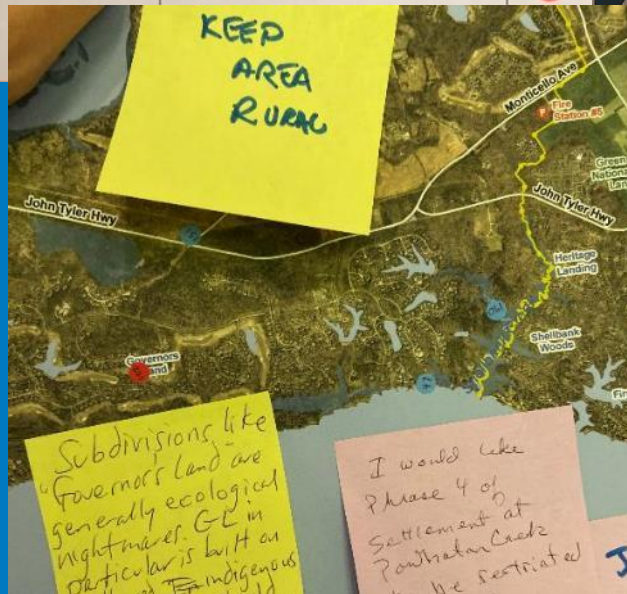 KEEP
AREA
RURAL
Monticello Ave
Fire
Station #5
Green
Nation
La
John Tyler Hwy
John Tyler Hwy
Heritage
Landing
Shellbank
Woods
Governors
Land
Fi
Subdivisions, like
"Governor's Land" are
generally ecological
nightmares. GL in
particular is built on
indigenous
I would like
Phrase 4 of
Settlement at
Powhatan Creek
be restricted
J